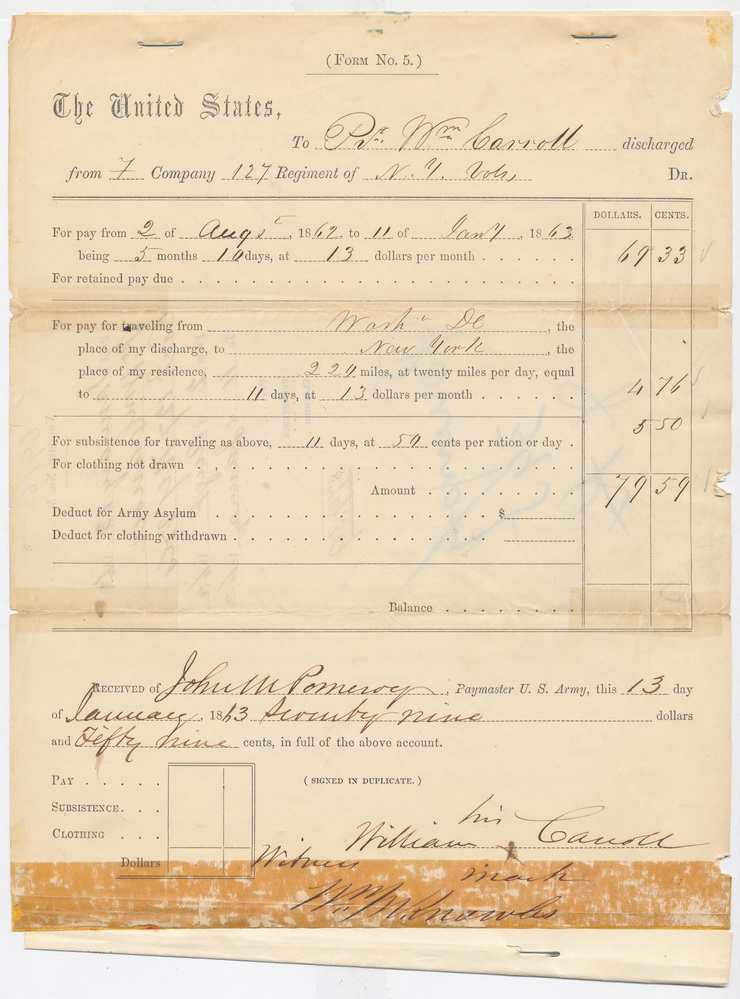 (Form No. 5.)
The United States,
To Pvt. Wm Carroll discharged
from F Company 127 Regiment of N. Y. Vols, Dr.
DOLLARS. CENTS.
For pay from 2 of Augst, 1862, to 11 of Jany, 1863
being 5 months 10 days, at 13 dollars per month 69 33
For retained pay due
For pay for traveling from Washn DC, the
place of my discharge, to New York, the
place of my residence, 220 miles, at twenty miles per day, equal
to 11 days, at 13 dollars per month 4 76
For subsistence for traveling as above, 11 days, at 50 cents per ration or day 5 50
For clothing not drawn
Amount 79 59
Deduct for Army Asylum $
Deduct for clothing withdrawn
Balance
Received of John M Pomeroy, Paymaster U. S. Army, this 13 day
of January, 1863 Seventy nine dollars
and Fifty nine cents, in full of the above account.
Pay
(SIGNED IN DUPLICATE.)
Subsistence
Clothing
his
William x Carroll
Dollars
Witness mark
Wm M. Knowles